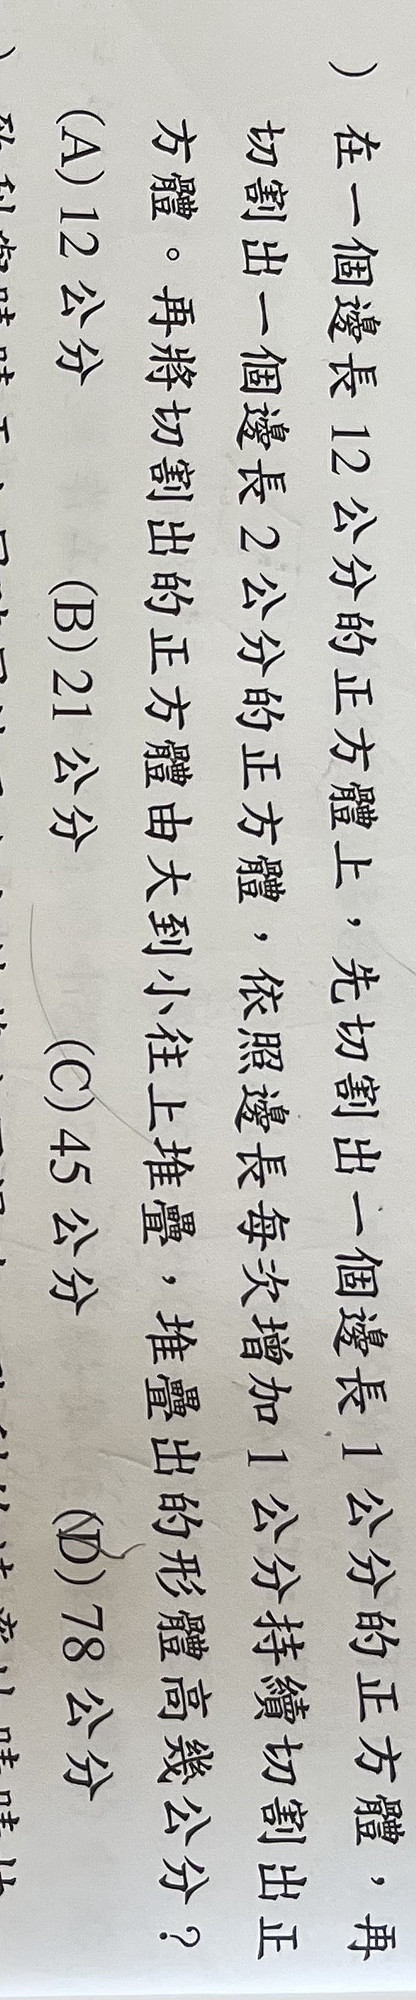 ) 在一個邊長 12 公分的正方體上，先切割出一個邊長 1 公分的正方體，再
切割出一個邊長 2 公分的正方體，依照邊長每次增加 1 公分持續切割出正
方體。再將切割出的正方體由大到小往上堆疊，堆疊出的形體高幾公分？
(A) 12 公分 (B) 21 公分 (C) 45 公分 (D) 78 公分
)